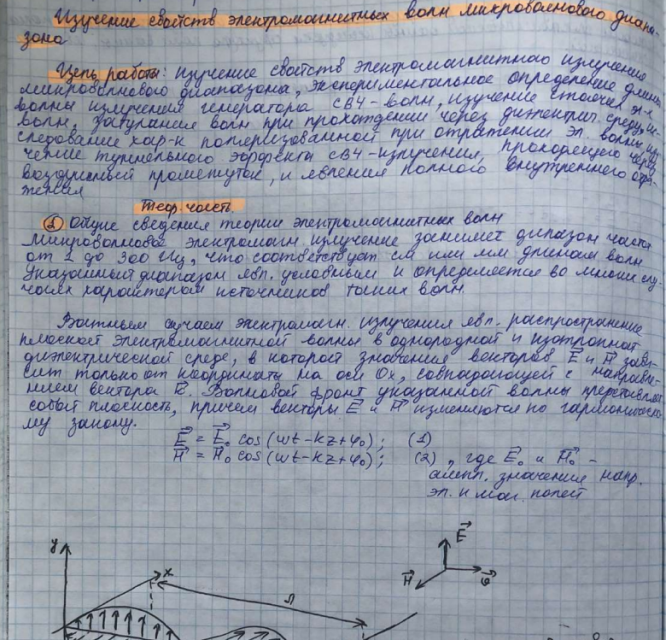 Изучение свойств электромагнитных волн микроволнового диапа-
зона
Цель работы: изучение свойств электромагнитного излучения
микроволнового диапазона, экспериментальное определение длины
волны излучения генератора СВЧ-волн, изучение стоячей эл-м
волн, затухание волн при прохождении через диэлектрич. среду, ис-
следование хар-к поляризованной при отражении эл. волны, изу-
чение туннельного эффекты СВЧ-излучения, проходящего через
воздушный промежуток, и явления полного внутреннего отра-
жения
Теор. часть
① Общие сведения теории электромагнитных волн
Микроволновое электромагн. излучение занимает диапазон частот
от 1 до 300 Гц, что соответствует см или мм длинам волн
Указанный диапазон явл. условным и определяется во многих слу-
чаях характером источников таких волн.
Важным случаем электромагн. излучения явл. распространение
плоской электромагнитной волны в однородной и изотропной
диэлектрической среде, в которой значения векторов E⃗ и H⃗ зави-
сит только от координаты на оси Ox, совпадающей с направле-
нием вектора k⃗. Волновой фронт указанной волны представляет
собой плоскость, причем векторы E⃗ и H⃗ изменяются по гармоническо-
му закону.
E⃗ = E⃗₀ cos (ωt - kz + φ₀); (1)
H⃗ = H⃗₀ cos (ωt - kz + φ₀); (2), где E⃗₀ и H⃗₀ -
ампл. значения напр.
эл. и маг. полей
y
x
λ
E⃗
H⃗